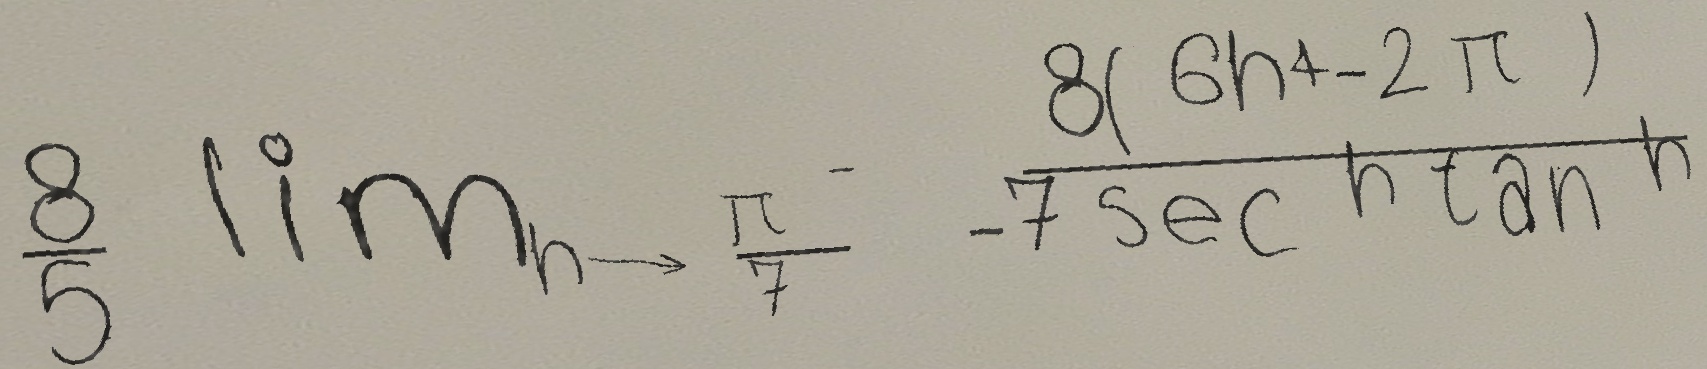 \frac{8}{5} \lim_{h \to \frac{\pi}{7}^{-}} \frac{8(6h+-2\pi)}{-7 \sec h \tan h}